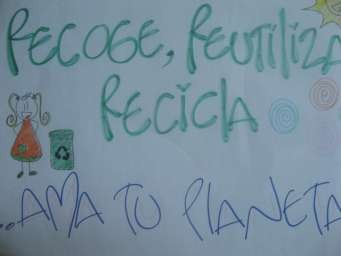 RECOGE, REUTILIZA
RECICLA
...AMA TU PLANETA